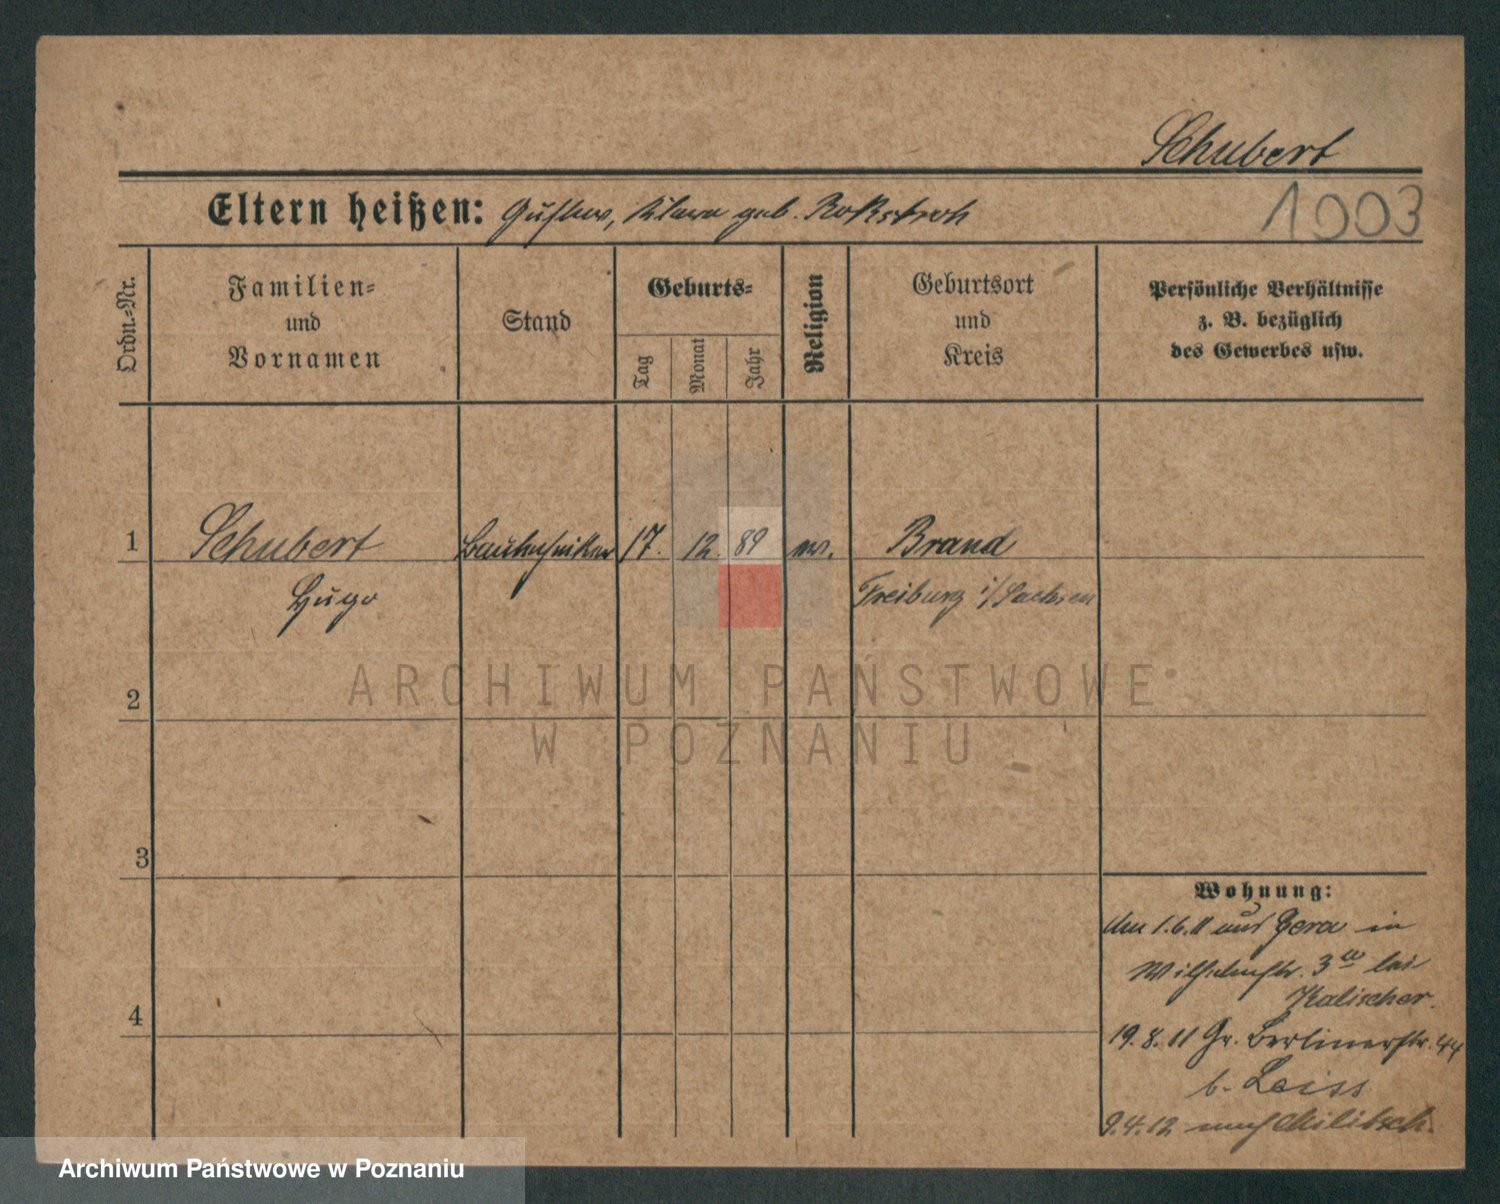 Schubert
Eltern heißen: Gustav, Klara geb. Rockstroh
1003
Ordn.-Nr.
Familien-
und
Vornamen
Stand
Geburts-
Tag
Monat
Jahr
Religion
Geburtsort
und
Kreis
Persönliche Verhältnisse
z. B. bezüglich
des Gewerbes usw.
1 Schubert Bautechniker 17. 12. 89 ev. Brand
Hugo Freiburg i/Sachsen
2
3
4
Wohnung:
Am 1.6.11 aus Gera in
Wilhelmstr. 3a bei
Kalischer.
19.8.11 Gr. Berlinerstr. 44
b. Leiss
9.4.12 nach Militsch.
ARCHIWUM PAŃSTWOWE
W POZNANIU
Archiwum Państwowe w Poznaniu